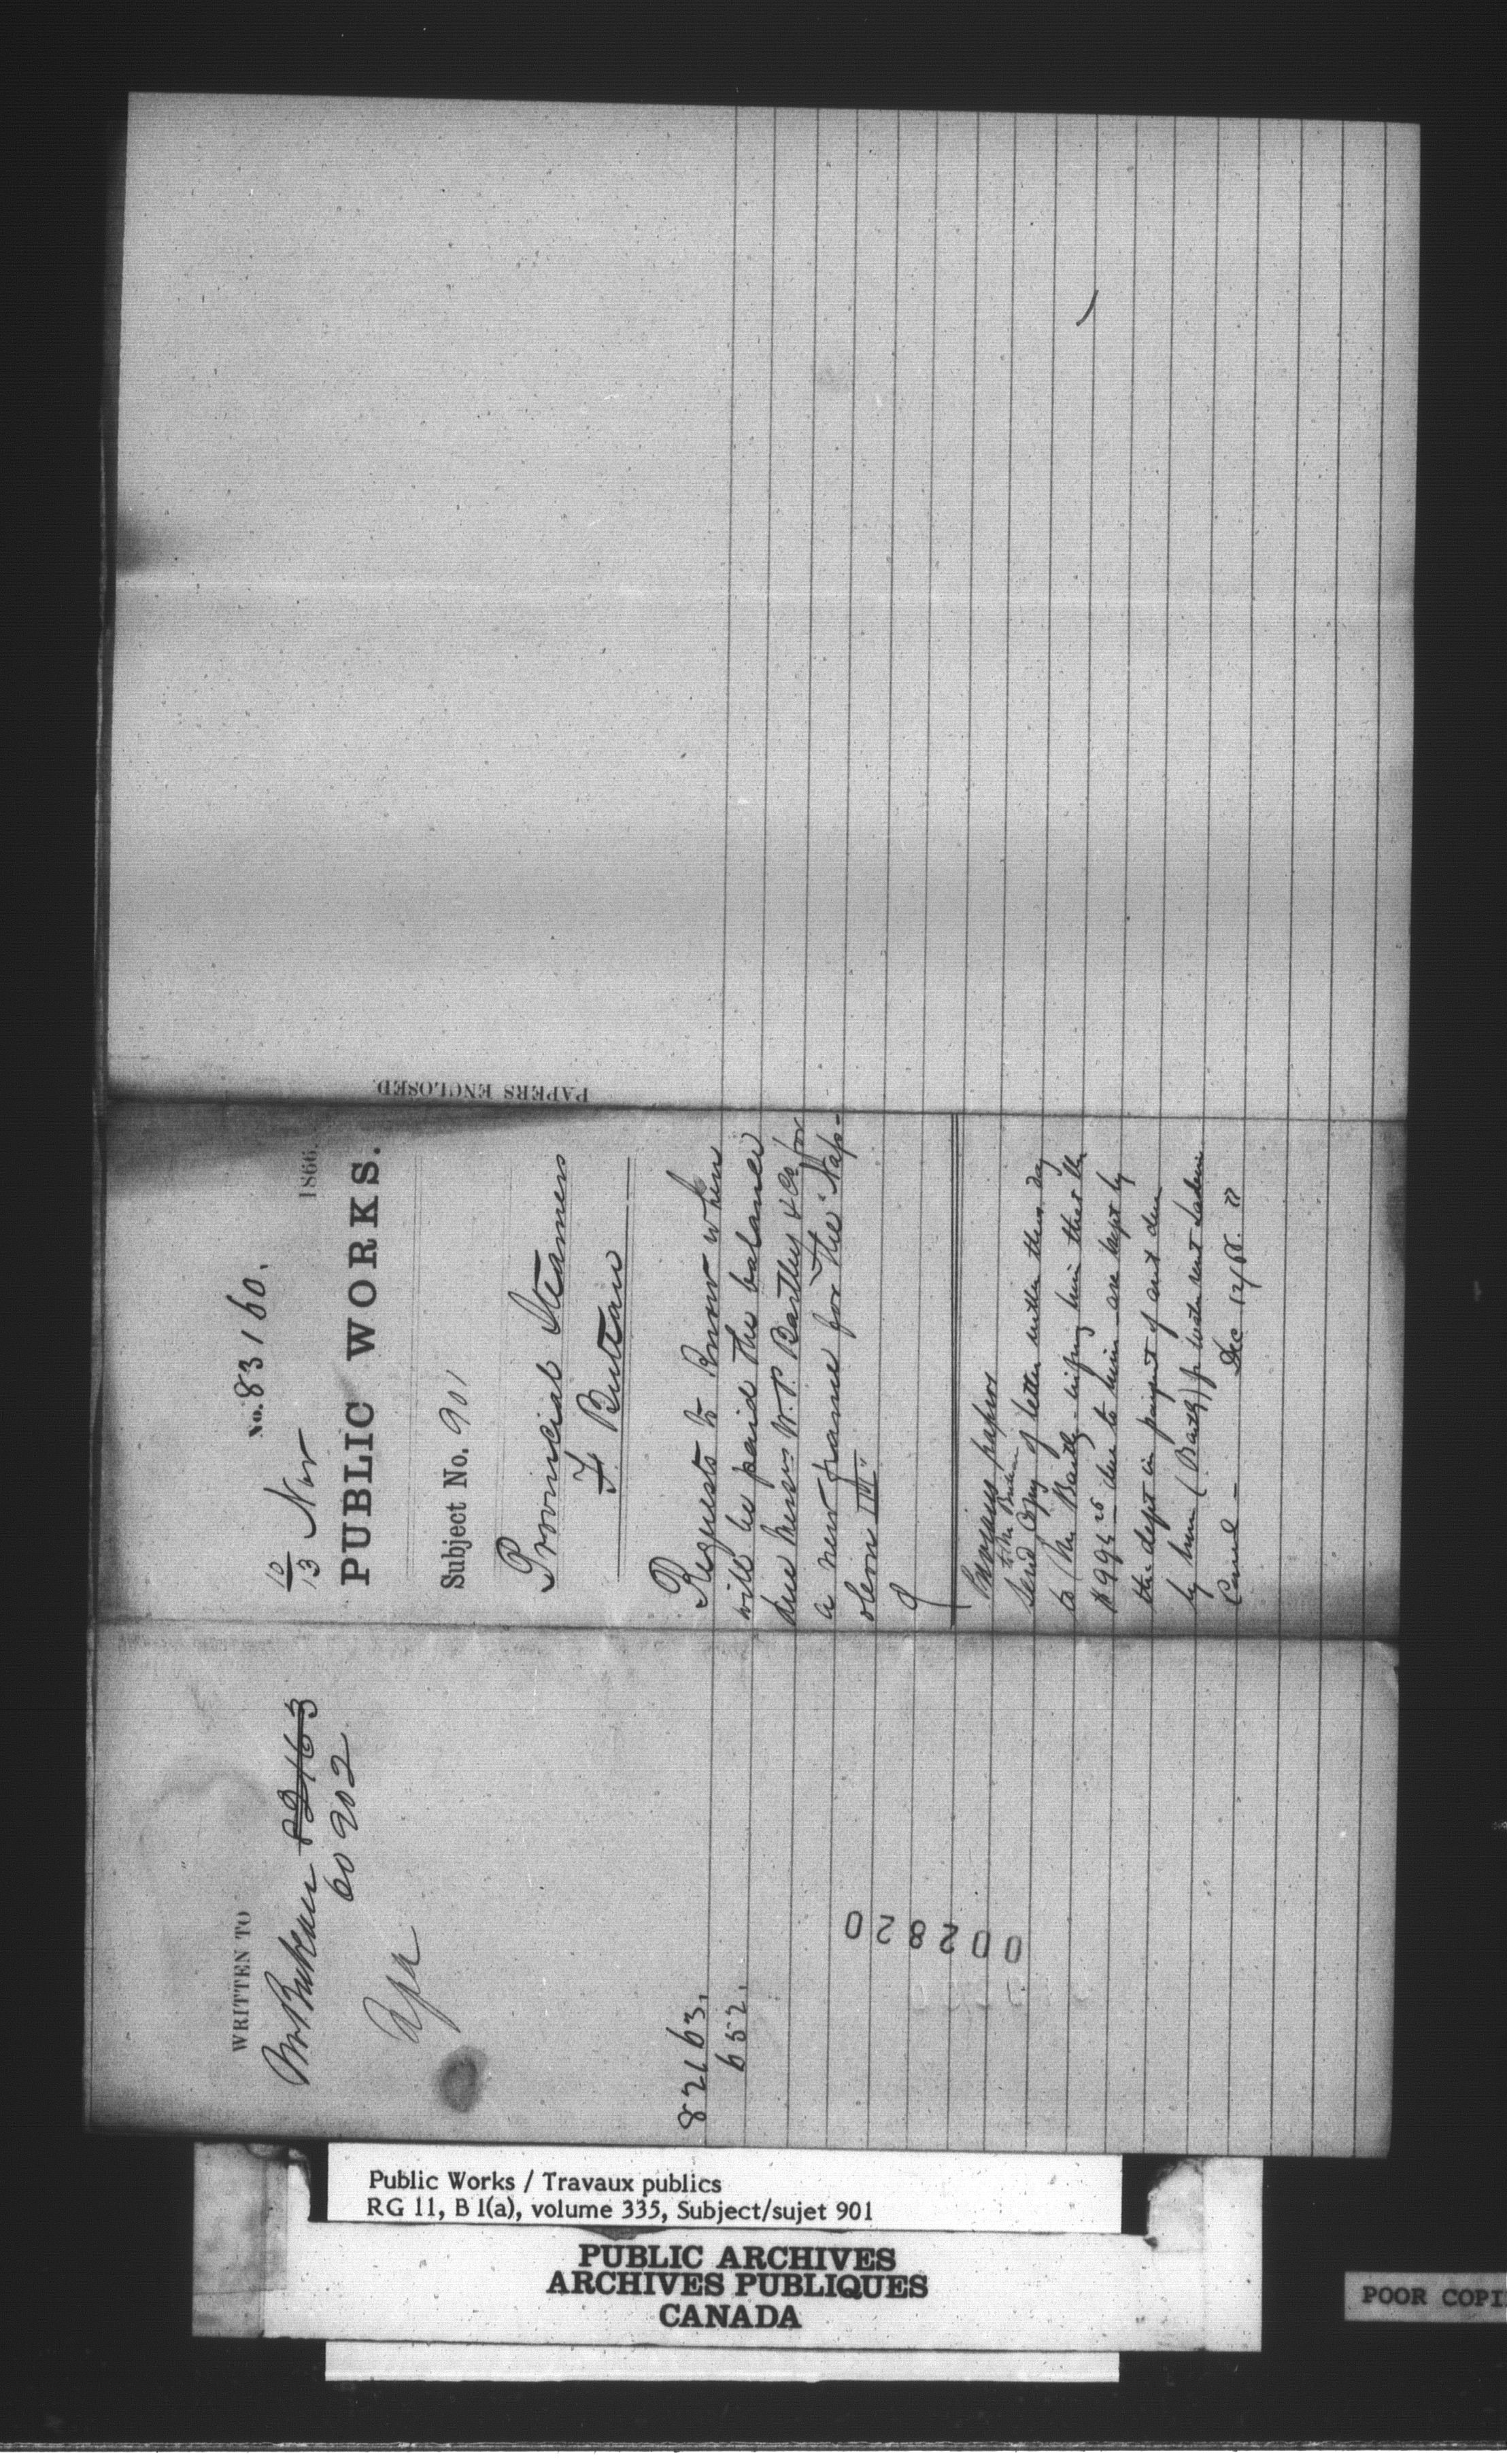 No. 83160.
10/13 Nov 1866.
PUBLIC WORKS.
Subject No. 901
Provincial Steamers
F. Buteau
Requests to know when
will be paid the balance
due Messrs W. P. Bartley & Co. for
a new frame for the "Nap-
oleon III"
Previous papers
to Mr Buteau
Send Copy of letter written this day
to Mr Bartley him that the
$996 25 due to him are kept by
the dept in payment of due
by him (Bartley) for water rent Lachine
Canal - Dec 12/66.
PAPERS ENCLOSED.
WRITTEN TO
Mr Buteau 82163
60902
82163.
652.
002820
Public Works / Travaux publics
RG 11, B 1(a), volume 335, Subject/sujet 901
PUBLIC ARCHIVES
ARCHIVES PUBLIQUES
CANADA
POOR COPI